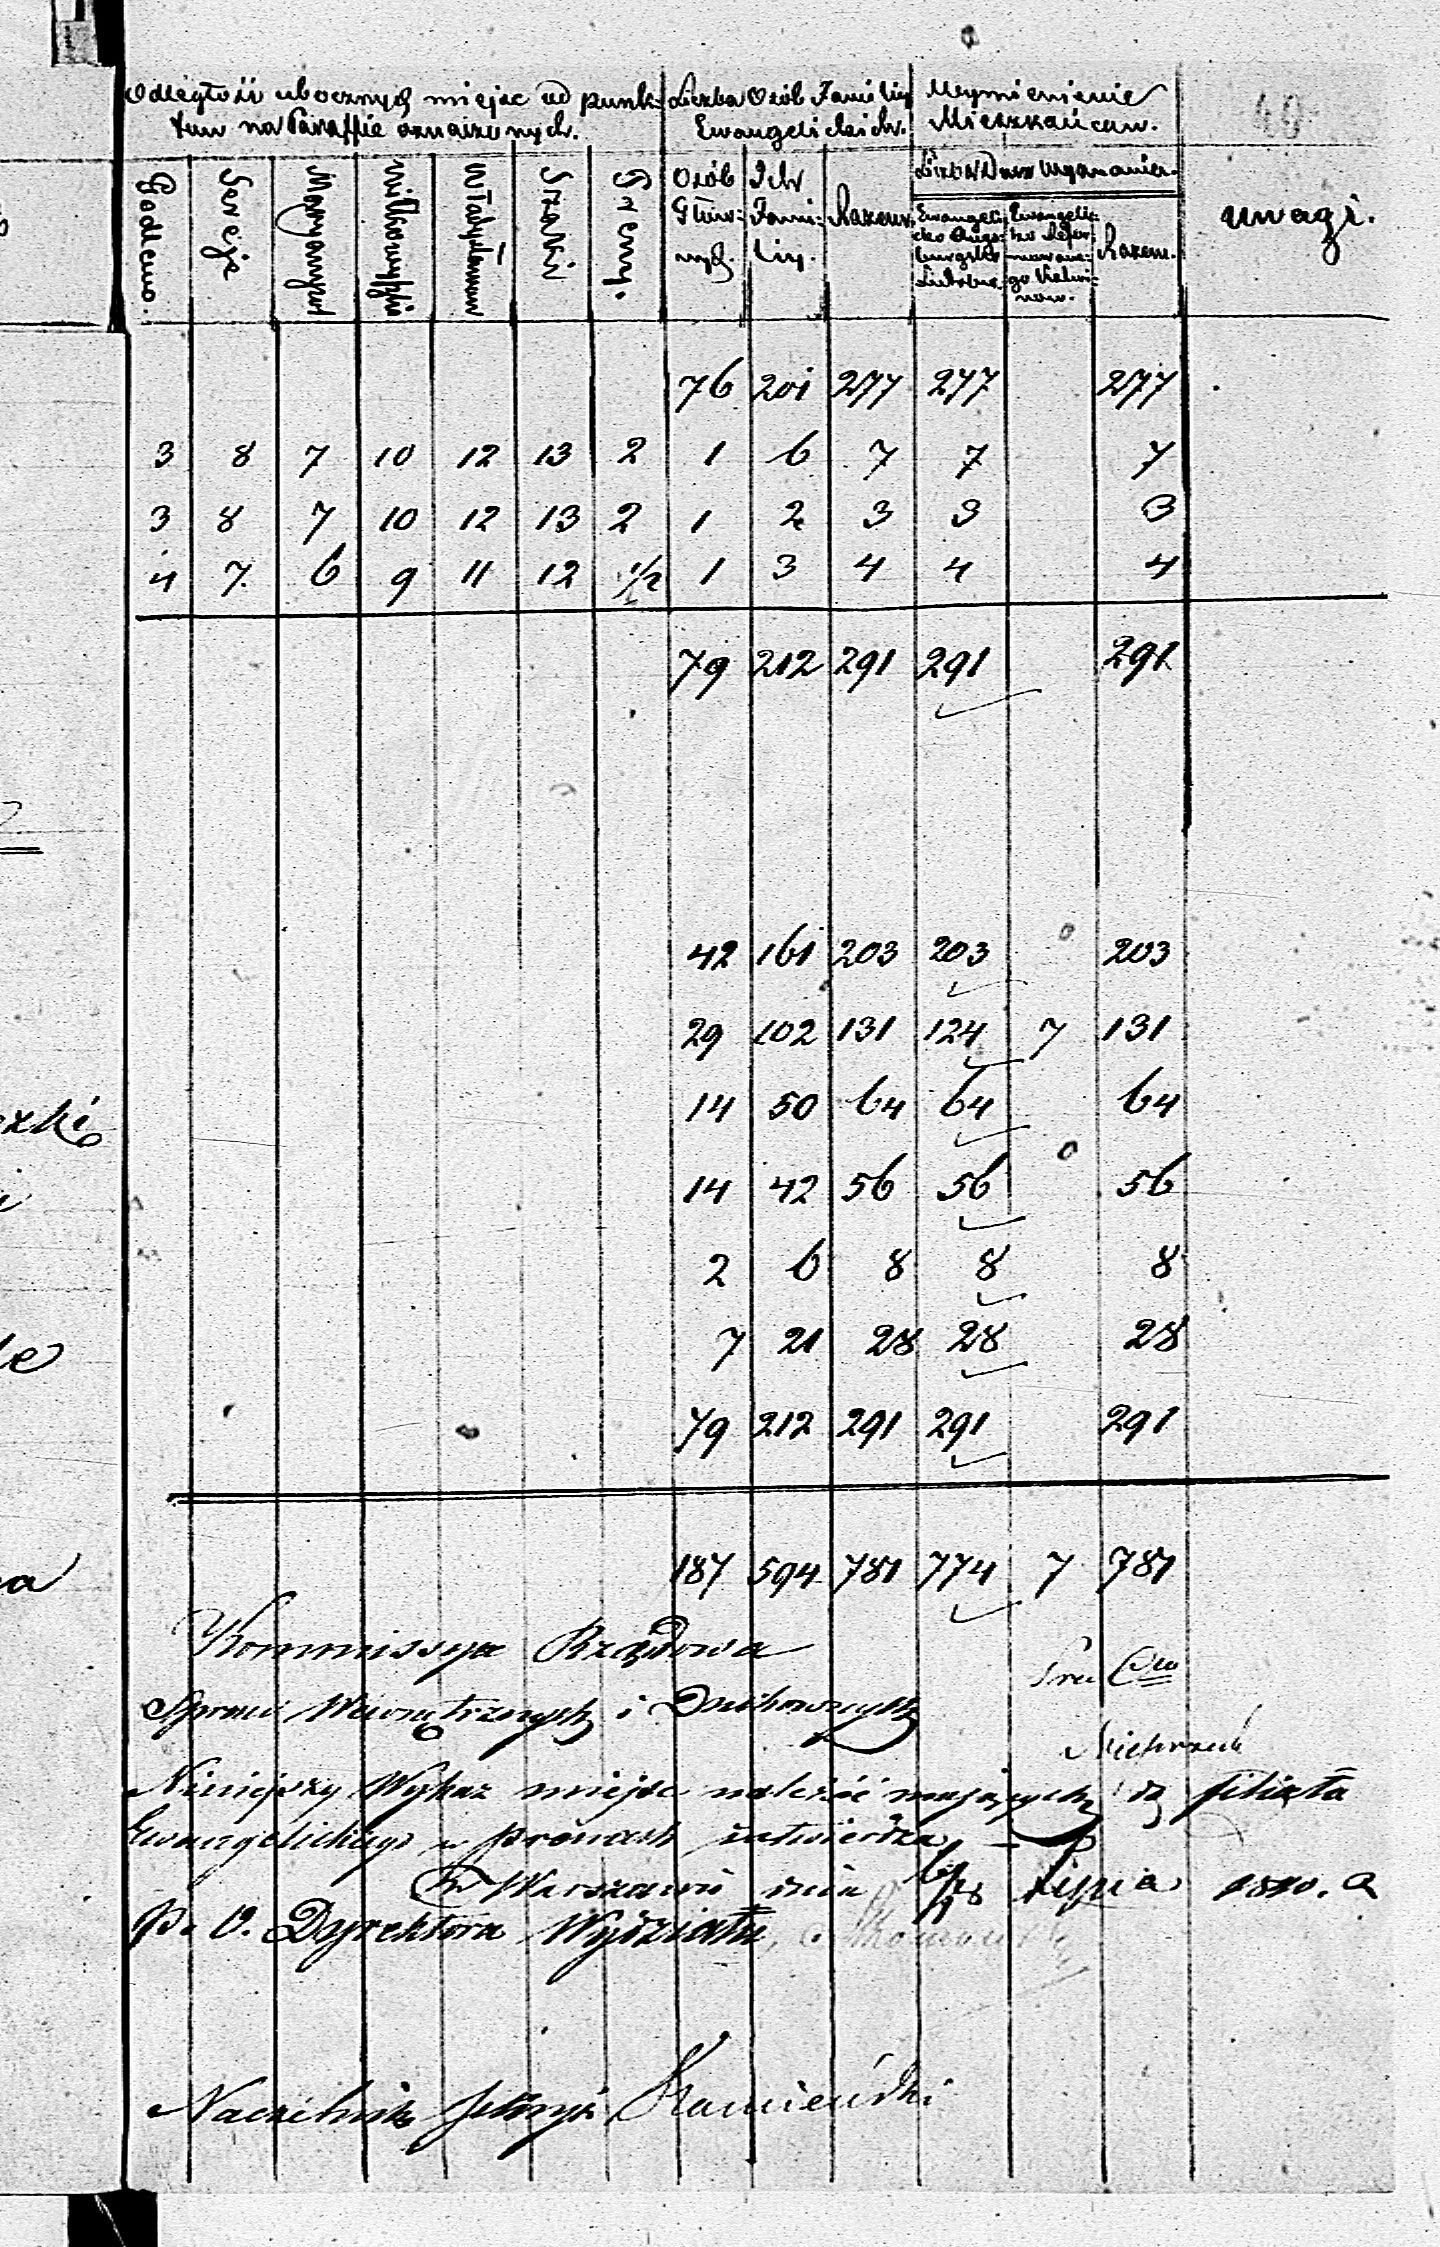 Odległość ubocznych miejsc od punk- Liczba Osób Familiy Wymienienie
tów na Paraffie oznaczonych. Ewangelickich. Mieszkańców.
40
Liczba Dusz Wyznania.
Godlewo. Sereje Maryampol Wiłkowyszki Władysławów Szaki Prenny.
Osób Głównych. Ich Familiy. Razem. Ewangelicko Augsburgsko Luterska. Ewangelicko Reformowanego Kalwinów. Razem. uwagi.
76 201 277 277 277
3 8 7 10 12 13 2 1 6 7 7 7
3 8 7 10 12 13 2 1 2 3 3 3
4 7 6 9 11 12 1/2 1 3 4 4 4
79 212 291 291 291
42 161 203 203 203
29 102 131 124 7 131
14 50 64 64 64
14 42 56 56 56
2 6 8 8 8
7 21 28 28 28
79 212 291 291 291
187 594 781 774 7 781
Kommissya Rządowa
Spraw Wewnętrznych i Duchownych
Niniejszy Wykaz miejsc należeć mających do filiału
Ewangelickiego w Prenach zatwierdza
w Warszawie dnia 6/18 Lipca
P. O. Dyrektora Wydziału
Naczelnik Sekcyi Kamieński